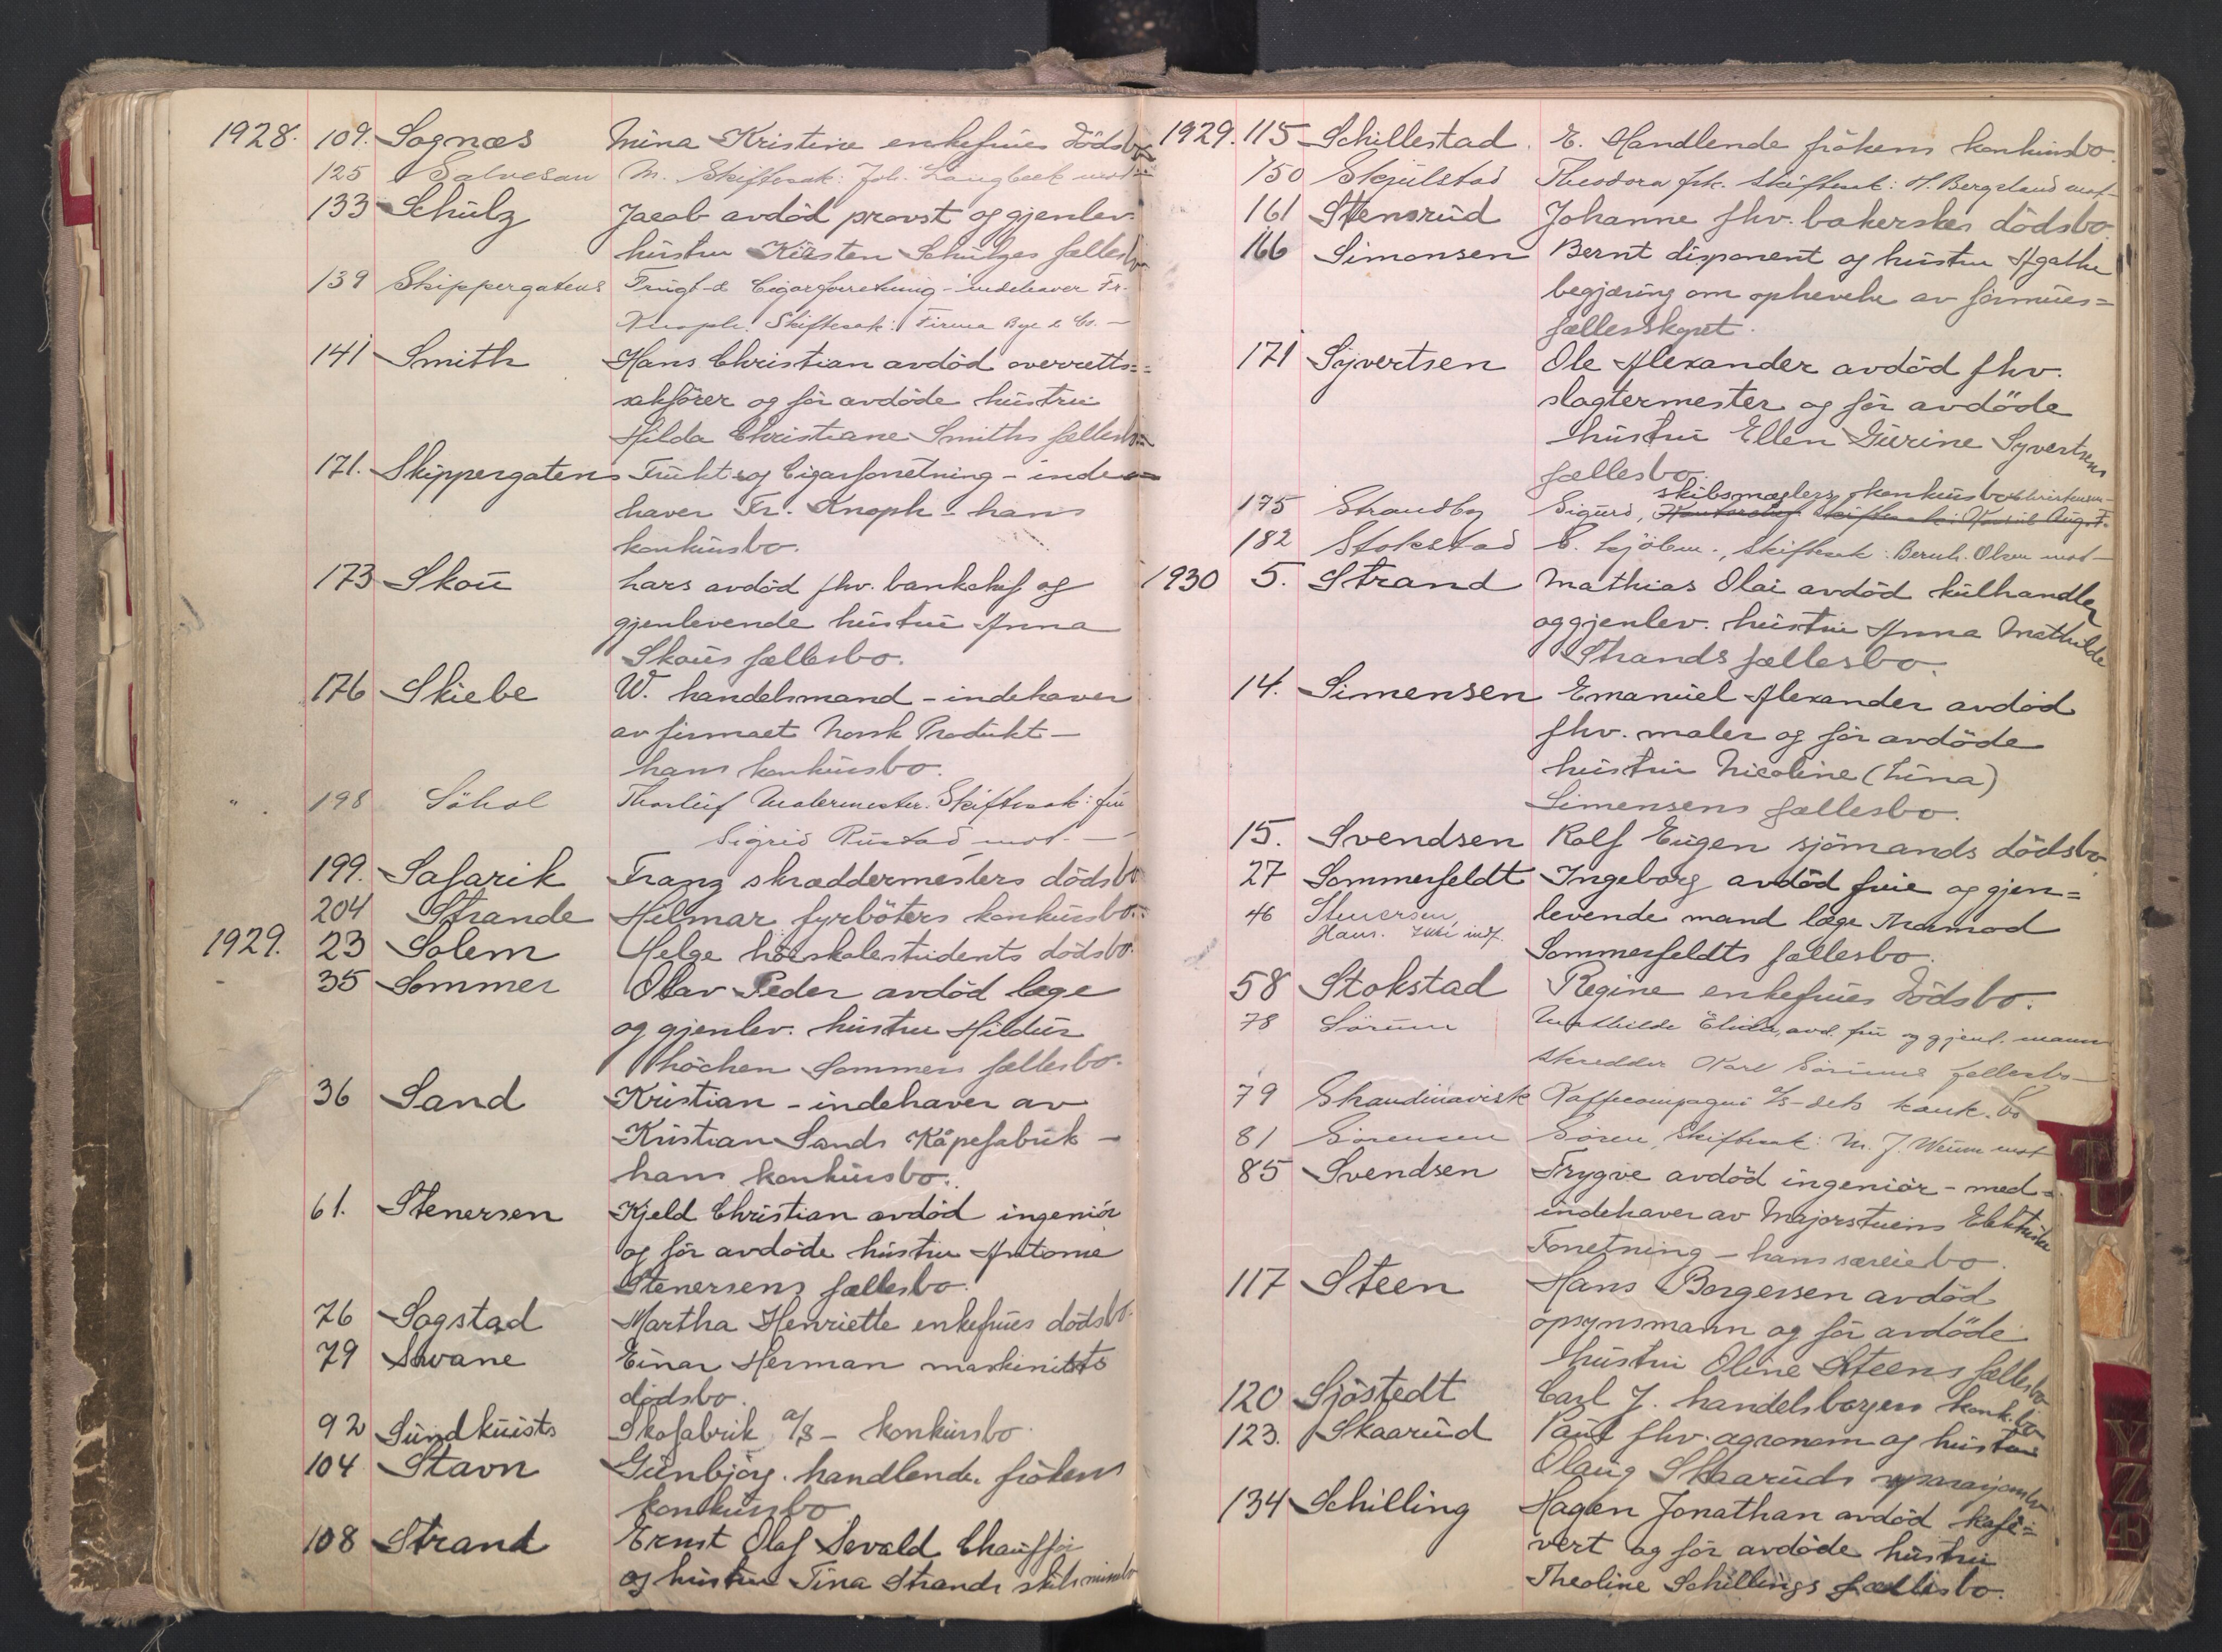 1928. 109. Sognæs Mina Kristine enkefrues dödsbo
125 Salvesen M. Skiftesak: Joh. Langbeck mot
133 Schulz Jacob avdöd provst og gjenlev.
hustru Kirsten Schulzes fællesbo
139 Skippergatens Frugt- & Cigarforretning - indehaver Fr.
Knoph. Skiftesak: Firma Bye & Co. —
141 Smith Hans Christian avdöd overretts=
sakförer og för avdöde hustru
Hilda Christiane Smiths fællesbo
171. Skippergatens Frukt- og Cigarforretning - inde=
haver Fr. Knoph - hans
konkursbo.
173 Skou Lars avdöd fhv. bankchef og
gjenlevende hustru Anna
Skous fællesbo.
176 Skiebe W. handelsmand - indehaver
av firmaet Norsk Produkt —
hans konkursbo.
198 Söhol Thorleif Malermester. Skiftesak: fru
Sigrid Rustad mot. —
199. Safarik Franz skræddermesters dödsbo
204 Strande Hilmar fyrböters konkursbo.
1929. 23 Solem Helge höiskolestudents dödsbo.
35 Sommer Olav Peder avdöd læge
og gjenlev. hustru Hildur
Löchen Sommers fællesbo.
36 Sand Kristian - indehaver av
Kristian Sands Kåpefabrik —
hans konkursbo.
61. Stenersen Kjeld Christian avdöd ingeniör
og för avdöde hustru Antonie
Stenersens fællesbo.
76 Sogstad Martha Henriette enkefrues dödsbo.
79 Svane Einar Herman maskinists
dödsbo.
92 Sundkuists Skofabrik a/s - konkursbo.
104 Stavn Gunbjörg. handlende frökens
konkursbo
108 Strand Ernst Olaf Sevald Chaufför
og hustru Tina Strands skilsmissebo
1929. 115 Schillestad. E. Handlende frökens konkursbo.
150 Skjulstad Theodora frk. Skiftesak: H. Bergeland mot —
161 Stensrud Johanne fhv. bakerskes dödsbo.
166 Simonsen Bernt disponent og hustru Agathe
begjæring om ophevelse av formues=
fællesskapet.
171 Syvertsen Ole Alexander avdöd fhv.
slagtermester og för avdöde
hustru Ellen Gurine Syvertsens
fællesbo.
skibsmæglers konkursbo
175 Strandby Sigurd, Skiftesak: August
182 Stokstad C. kjöbm., Skiftesak: Bernh. Olsen mot —
1930 5. Strand Mathias Olai avdöd kulhandler
og gjenlev. hustru Anna Mathilde
Strands fællesbo
14. Simensen Emanuel Alexander avdöd
fhv. maler og för avdöde
hustru Nicoline (Lina)
Simensens fællesbo.
15. Svendsen Rolf Eugen sjömands dödsbo
27 Sommerfeldt Ingeborg avdöd frue og gjen=
46 Stenersen, levende mand læge Tramod
Hans.
Sommerfeldts fællesbo.
58 Stokstad Regine enkefrues dödsbo.
78 Sörum Mathilde Elida, avd. fru og gjenl. mann
skredder Karl Sörums fellesbo —
79 Skandinavisk Kaffecompagni A/S - dets konk.bo
81 Sörensen Sören, Skiftesak: M. J. Weum mot
85 Svendsen Trygve avdöd ingeniör - med=
indehaver av Majorstuens Elektriske
Forretning - hans særeiebo.
117 Steen Hans Borgersen avdöd
opsynsmann og för avdöde
hustru Oline Steens fællesbo
120 Sjöstedt Carl J. handelsborgers konk.bo
123. Skaarud Paul fhv. agronom og hustru
Olaug Skaaruds
134 Schilling Hagen Jonathan avdöd kafé=
vert og för avdöde hustru
Theoline Schillings fællesbo.
TU
YZ
Æ